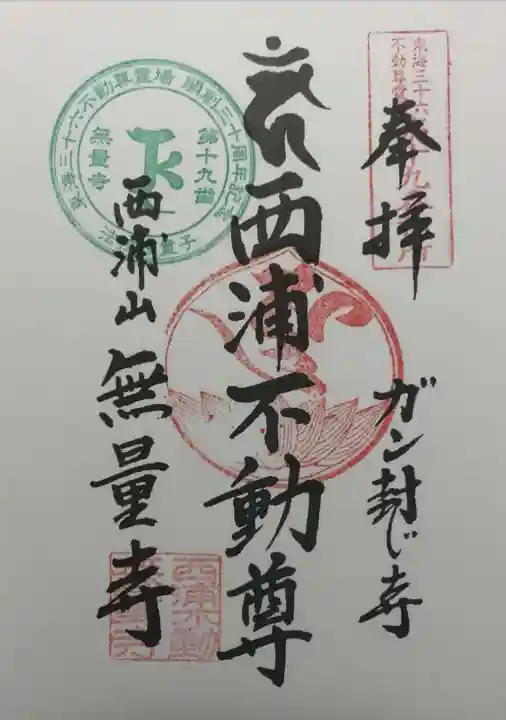 奉拝
ガン封じ寺
西浦不動尊
西浦山
無量寺
東海三十六
不動尊霊
九
東海三十六不動尊霊場 開創三十周年記
無量寺
第十九番
西浦不動